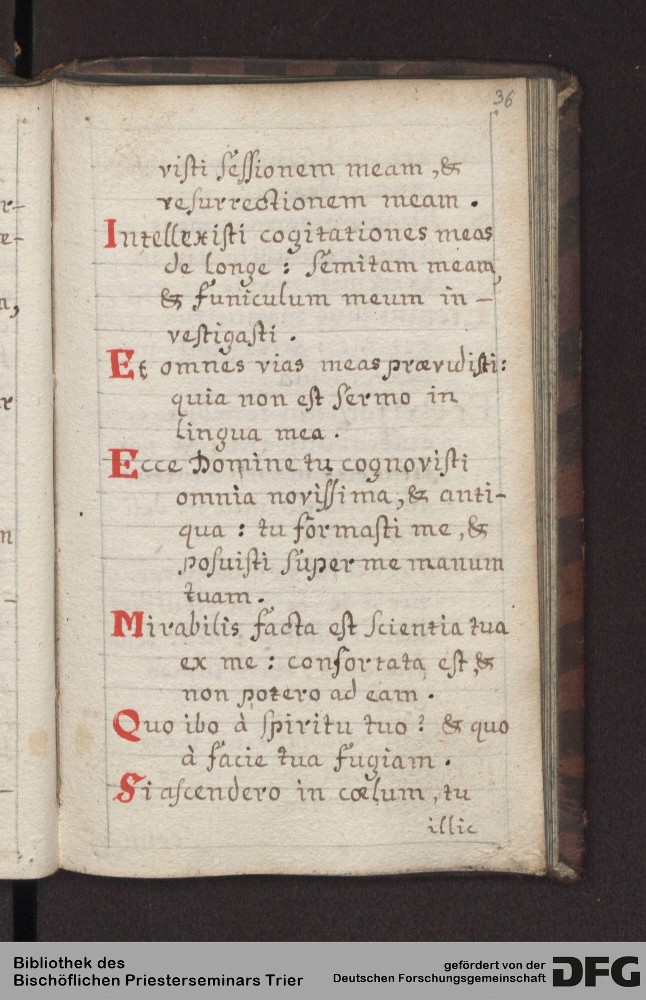 36
visti sessionem meam, &
resurrectionem meam.
Intellexisti cogitationes meas
de longe: semitam meam,
& funiculum meum in-
vestigasti.
Et omnes vias meas prævidisti:
quia non est sermo in
lingua mea.
Ecce Domine tu cognovisti
omnia novissima, & anti-
qua: tu formasti me, &
posuisti super me manum
tuam.
Mirabilis facta est scientia tua
ex me: confortata est, &
non potero ad eam.
Quo ibo à spiritu tuo? & quo
à facie tua fugiam.
Si ascendero in cœlum, tu
illic
Bibliothek des
Bischöflichen Priesterseminars Trier
gefördert von der
Deutschen Forschungsgemeinschaft
DFG